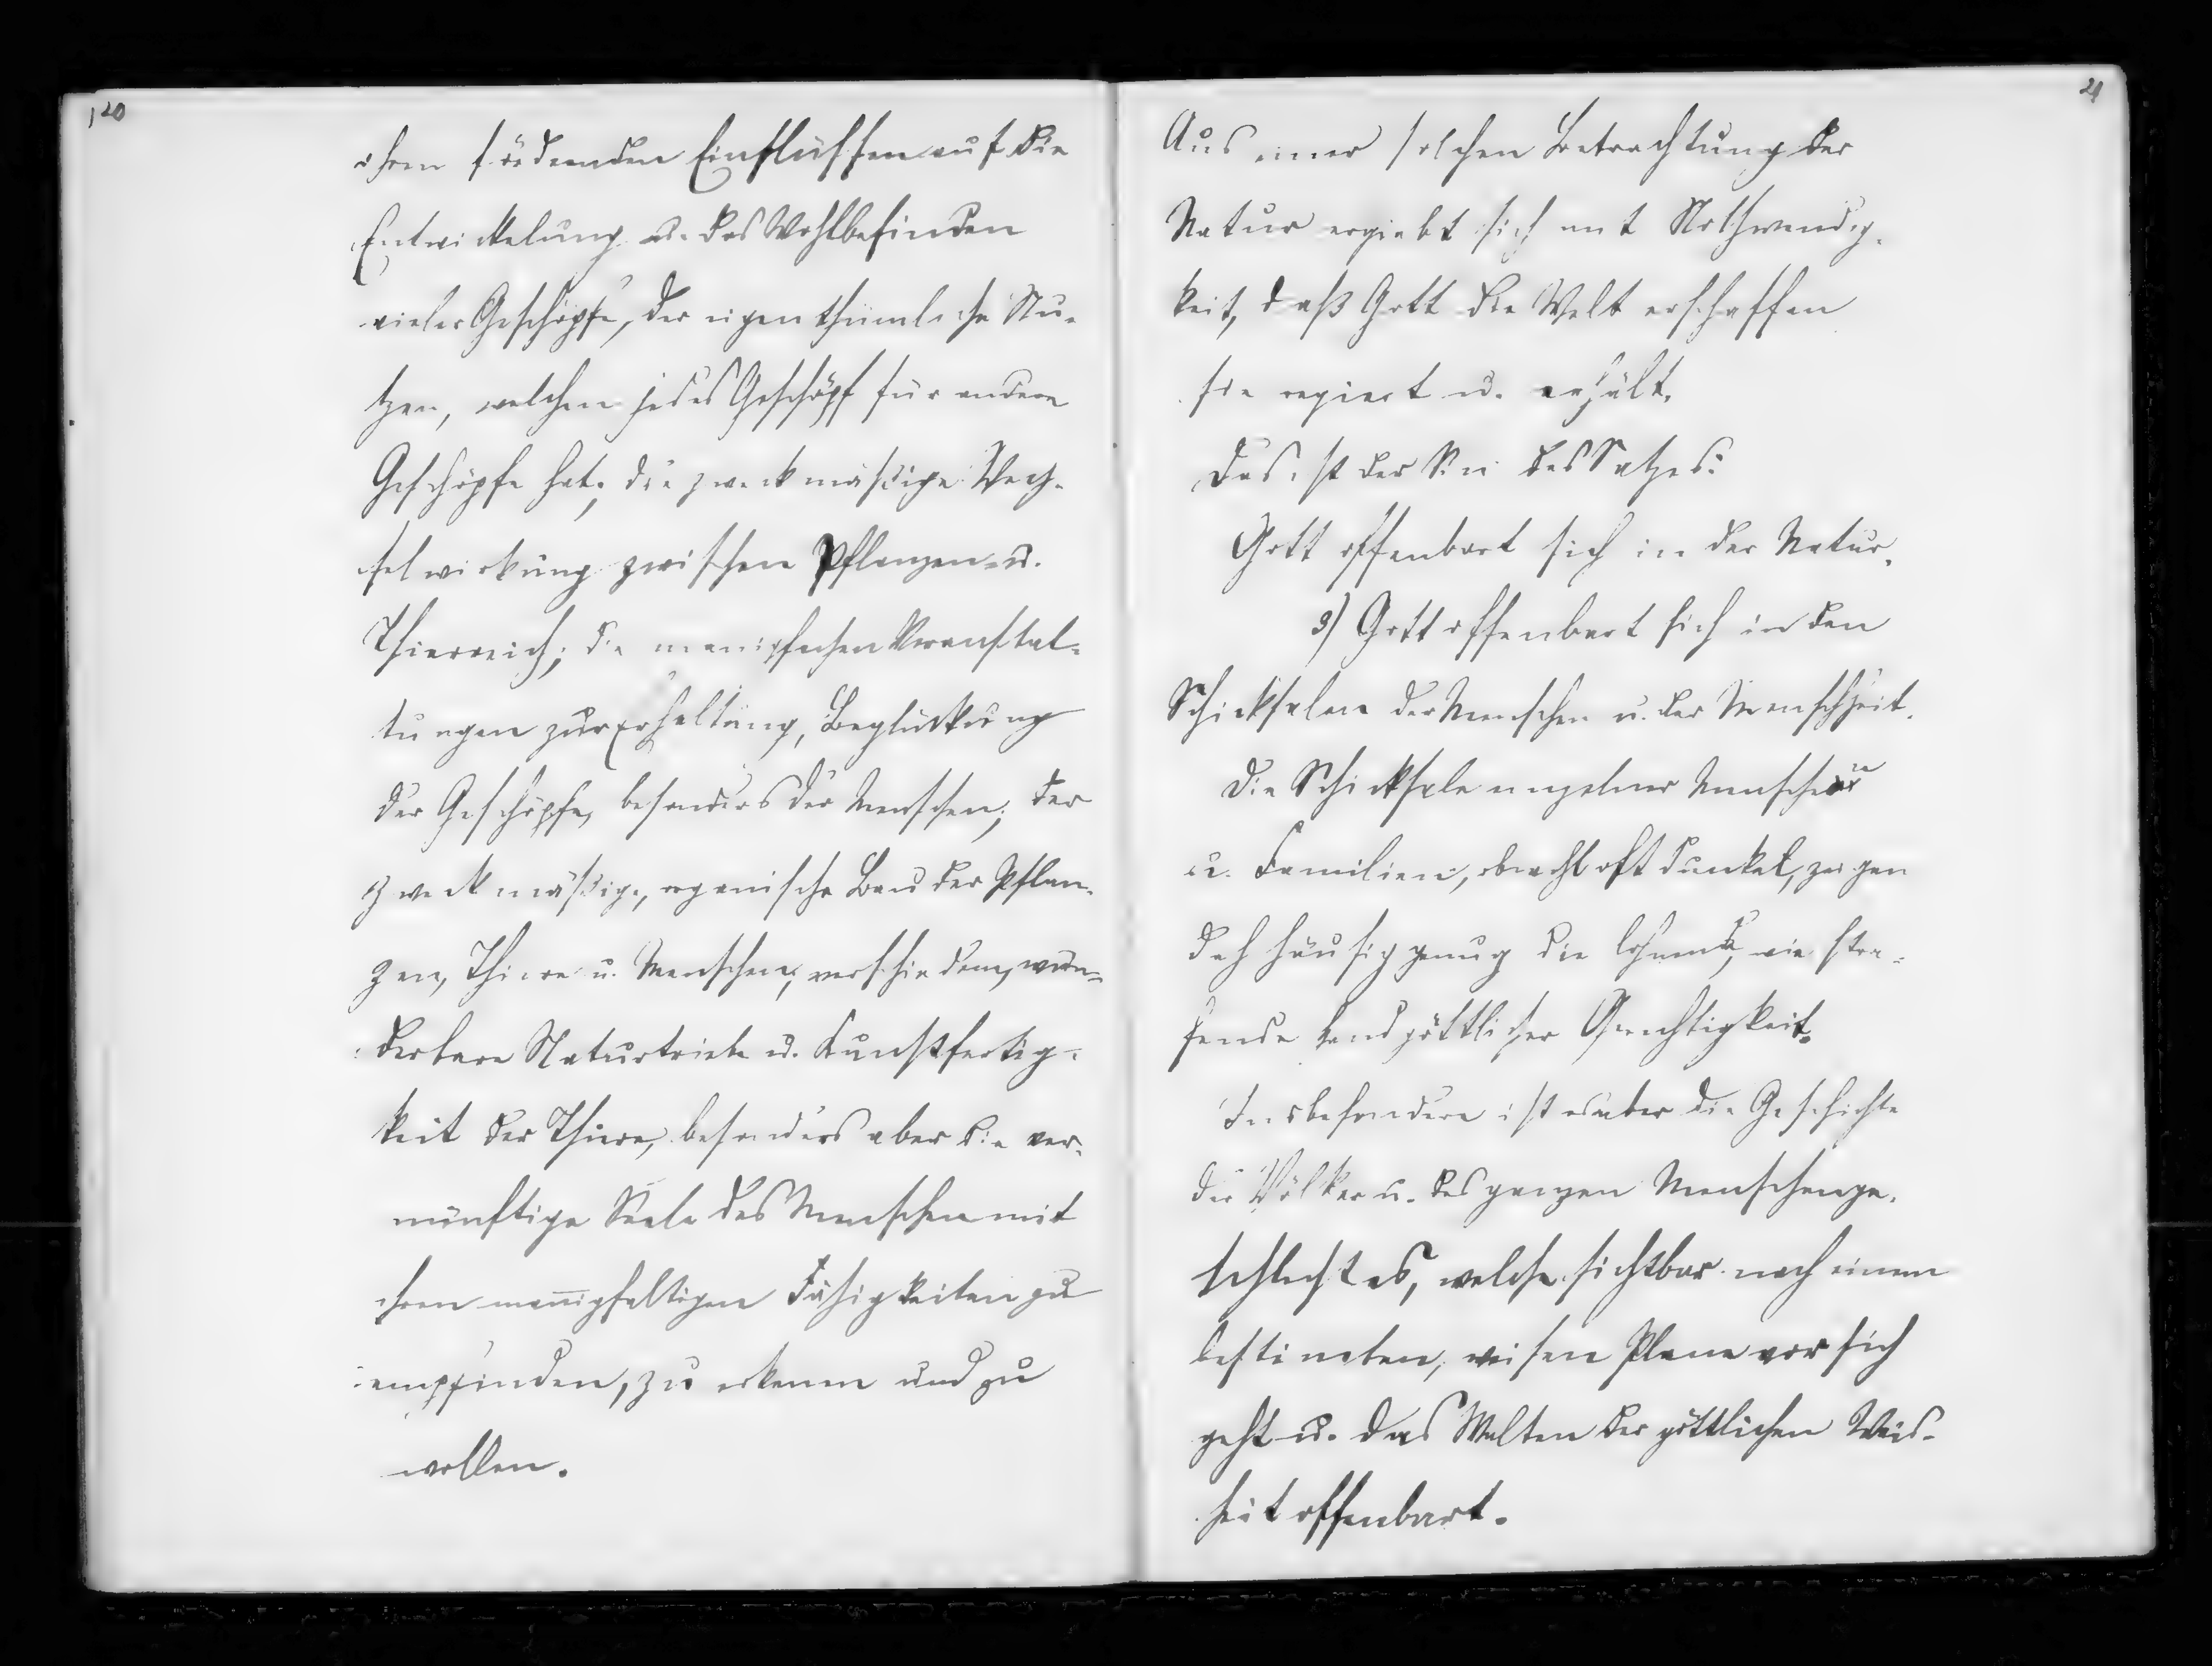 120
ihren fördernden Einflüssen auf die
Entwickelung u. das Wohlbefinden
vieler Geschöpfe, der eigenthümliche Nu-
tzen, welchen jedes Geschöpf für andere
Geschöpfe hat; die zweckmäßige Wech-
selwirkung zwischen Pflanzen- u.
Thierreich; die manigfachen Veranstal-
tungen zur Erhaltung, Beglückung
der Geschöpfe, besonders der Menschen; der
zweckmäßige, organische Bau der Pflan-
zen, Thiere u. Menschen; verschiedene, wun-
derbare Naturtriebe u. Kunstfertig-
keit der Thiere, besonders aber die ver-
nünftige Seele des Menschen mit
ihren manigfaltigen Fähigkeiten zu
empfinden, zu erkenen und zu
wollen.
21
Aus einer solchen Betrachtung der
Natur ergiebt sich mit Nothwendig-
keit, daß Gott die Welt erschaffen
sie regiert u. erhält.
Das ist der Sin des Satzes:
Gott offenbart sich in der Natur.
3) Gott offenbart sich in den
Schicksalen der Menschen u. der Menschheit.
Die Schicksale einzelner Menschen
u. Familien, obwohl oft dunkel, zeigen
doch häufig genug die lohnende, wie stra-
fende Hand göttlicher Gerechtigkeit.
Insbesondere ist es aber die Geschichte
der Völker u. des ganzen Menschenge-
schlechtes, welche sichtbar nach einem
bestimten, weisen Plane vor sich
geht u. das Walten der göttlichen Weis-
heit offenbart.